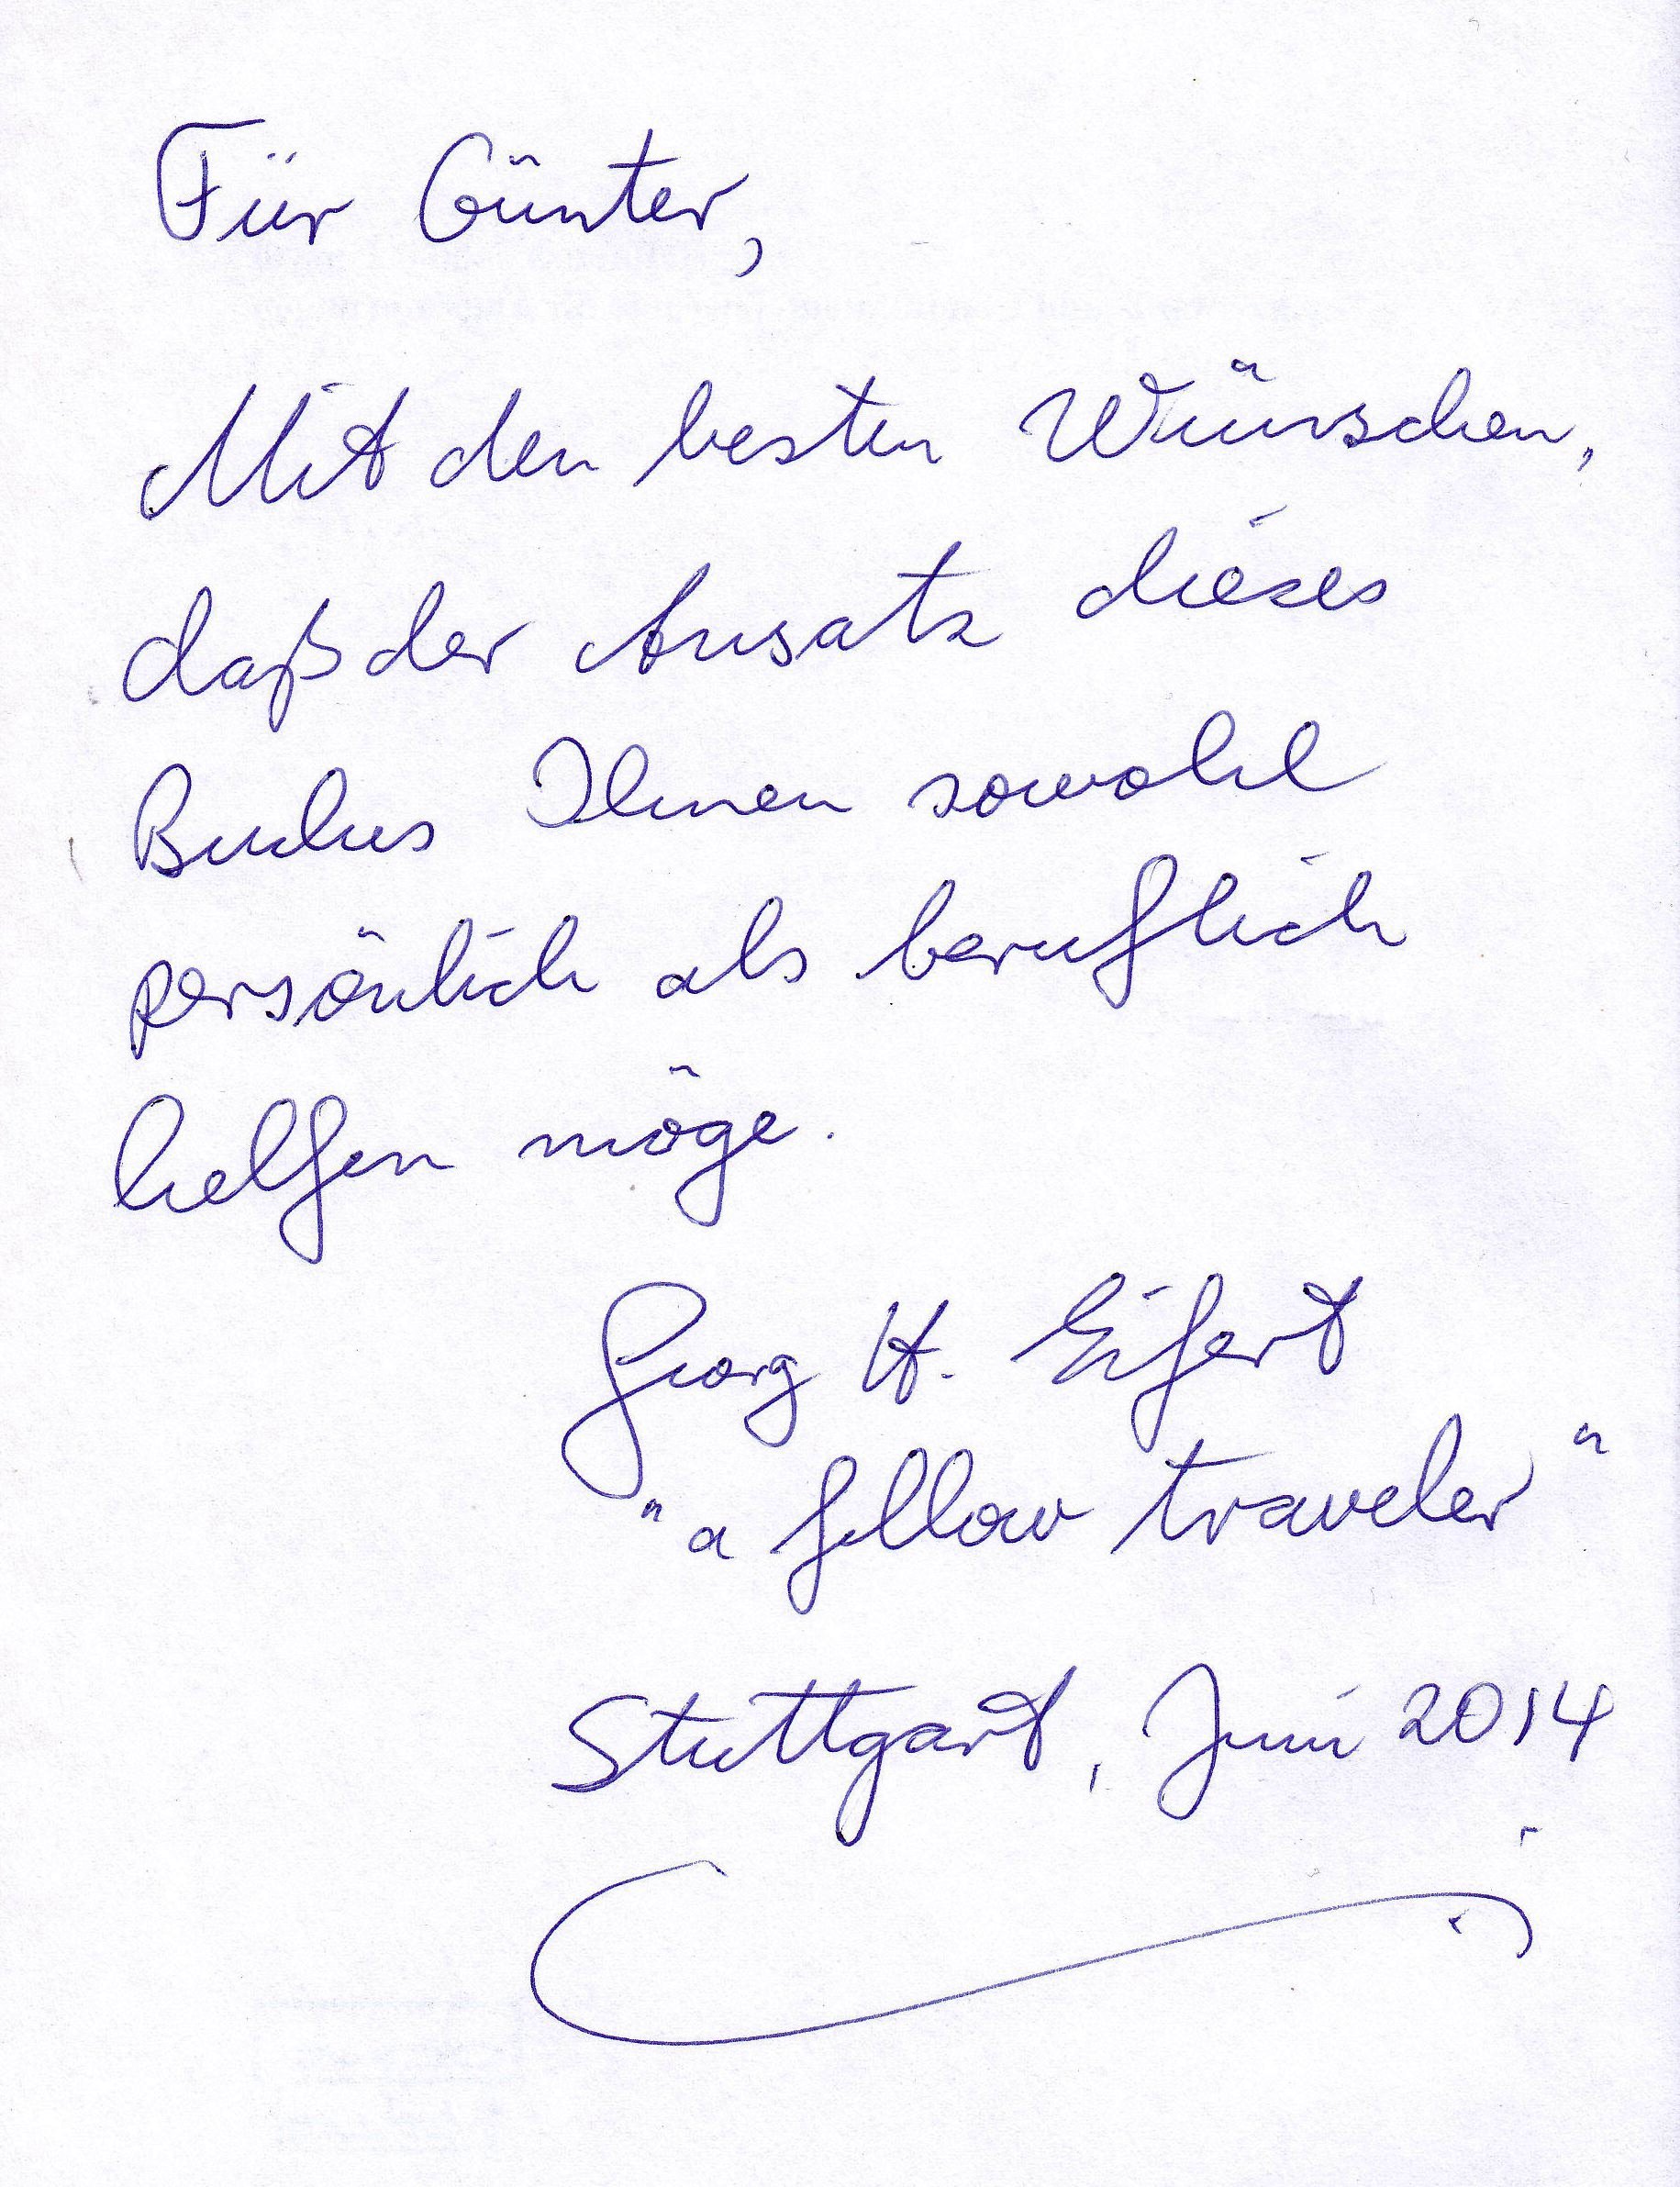 Für Günter,
Mit den besten Wünschen,
daß der Ansatz dieses
Buches Ihnen sowohl
persönlich als beruflich
helfen möge.
Georg H. Eifert
"a fellow traveler"
Stuttgart, Juni 2014